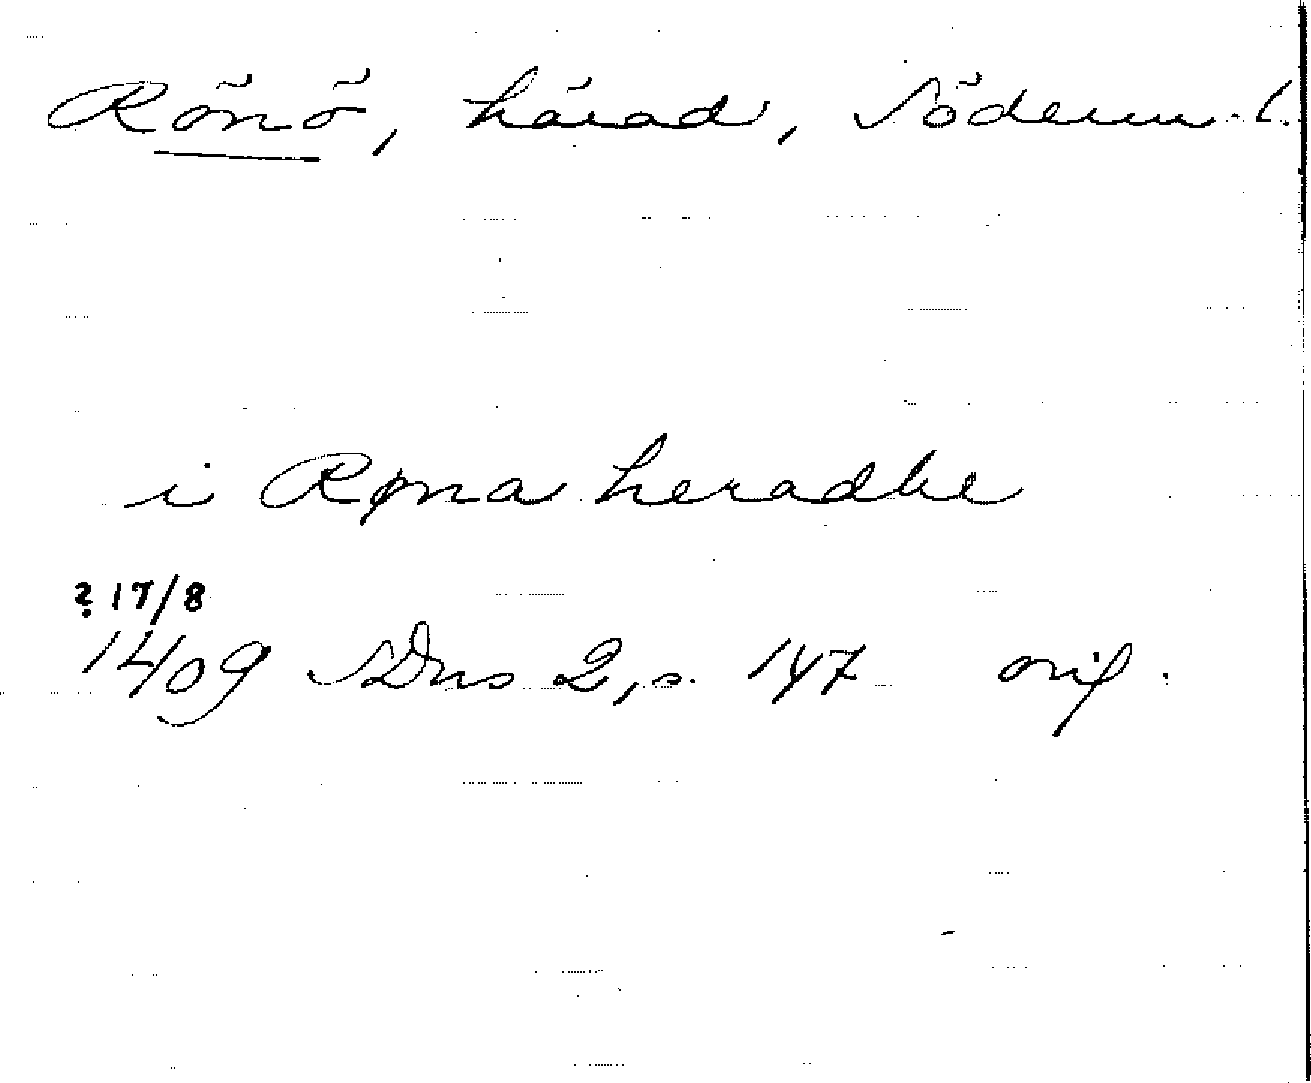 Rönö, härad, Söderm. l.
i Røna heradhe
? 17/8
1409 SDns 2, s. 147 orig.